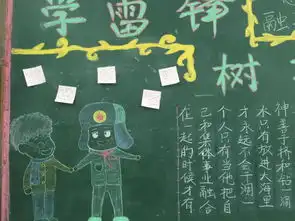 学雷锋
树
融
神善于挤和钻一滴
水只有放进大海里
才永远不会干涸一
个人只有当他把自
己和集体事业融合
在一起的时候才有